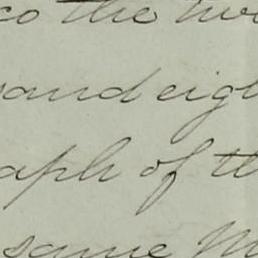 to the two
sand eigh
aph of th
same M